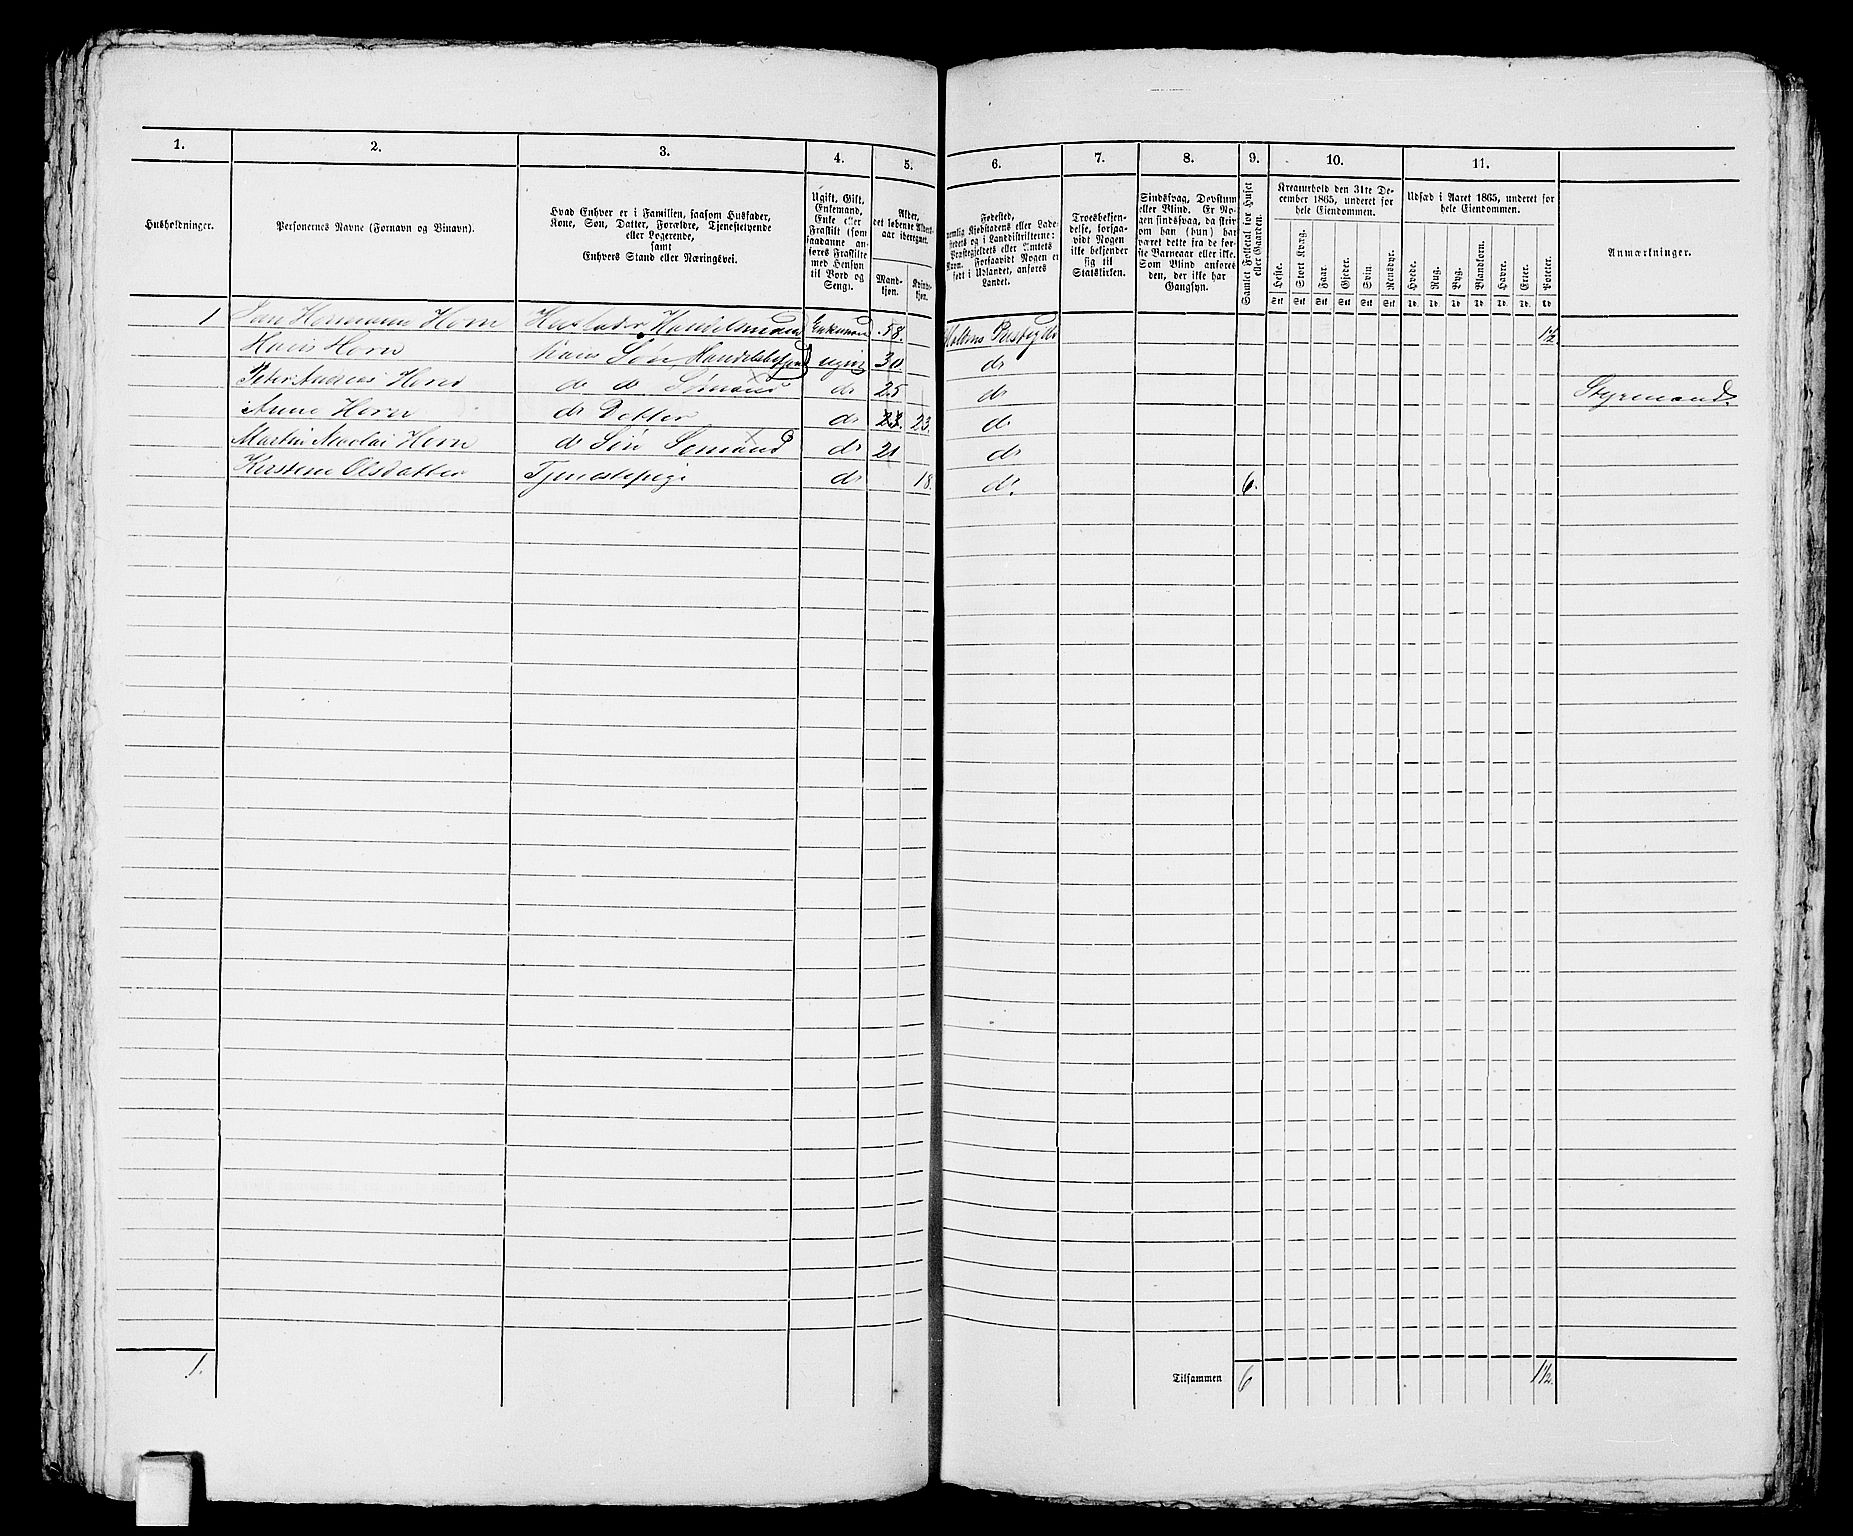 1. 2. 3. 4. 5. 6. 7. 8. 9. 10. 11.
Husholdninger.
Personernes Navne (Fornavn og Binavn).
Hvad Enhver er i Familien, saasom Husfader,
Kone, Søn, Datter, Forældre, Tjenestetyende
eller Logerende,
samt
Enhvers Stand eller Næringsvei.
Ugift, Gift,
Enkemand,
Enke eller
Fraskilt (som
saadanne an-
føres Fraskilte
med Hensyn
til Bord og
Seng).
Alder,
det løbende Alders-
aar iberegnet.
Mand-
kjøn.
Kvinde-
kjøn.
Fødested,
nemlig Kjøbstadens eller Lade-
stedets og i Landdistrikterne:
Præstegjeldets eller Amtets
Navn. Forsaavidt Nogen er
født i Udlandet, anføres
Landet.
Troesbekjen-
delse, forsaa-
vidt Nogen
ikke bekjender
sig til
Statskirken.
Sindssvag, Døvstum
eller Blind. Er No-
gen sindssvag, da skriv
om han (hun) har
været dette fra de før-
ste Barneaar eller ikke.
Som Blind anføres
den, der ikke har
Gangsyn.
Samlet Folketal for Huset
eller Gaarden.
Kreaturhold den 31te De-
cember 1865, underet for
hele Eiendommen.
Heste. Stort Kvæg. Faar. Gjeder. Svin Rensdyr.
Stk Stk Stk Stk Stk Stk
Udsæd i Aaret 1865, underet for
hele Eiendommen.
Hvede. Rug. Byg. Blandkorn. Havre. Erter. Poteter.
Td. Td. Td. Td. Td. Td. Td
Anmærkninger.
1 Jan Hermann Horn Husfader Handelsmand Enkemand 58. Holtens Prestegjeld 1 1/2
Hans Horn hans Søn, ugivt 30 do
Peter Andreas Horn do do Sømand do 25 do Styrmand.
Anne Horn do Datter do 23. 23. do
Martin Nicolai Horn do Søn Sømand do 21 do
Kirstene Olsdatter Tjenestepige do 18. do. 6.
1. Tilsammen 6 1 1/2.